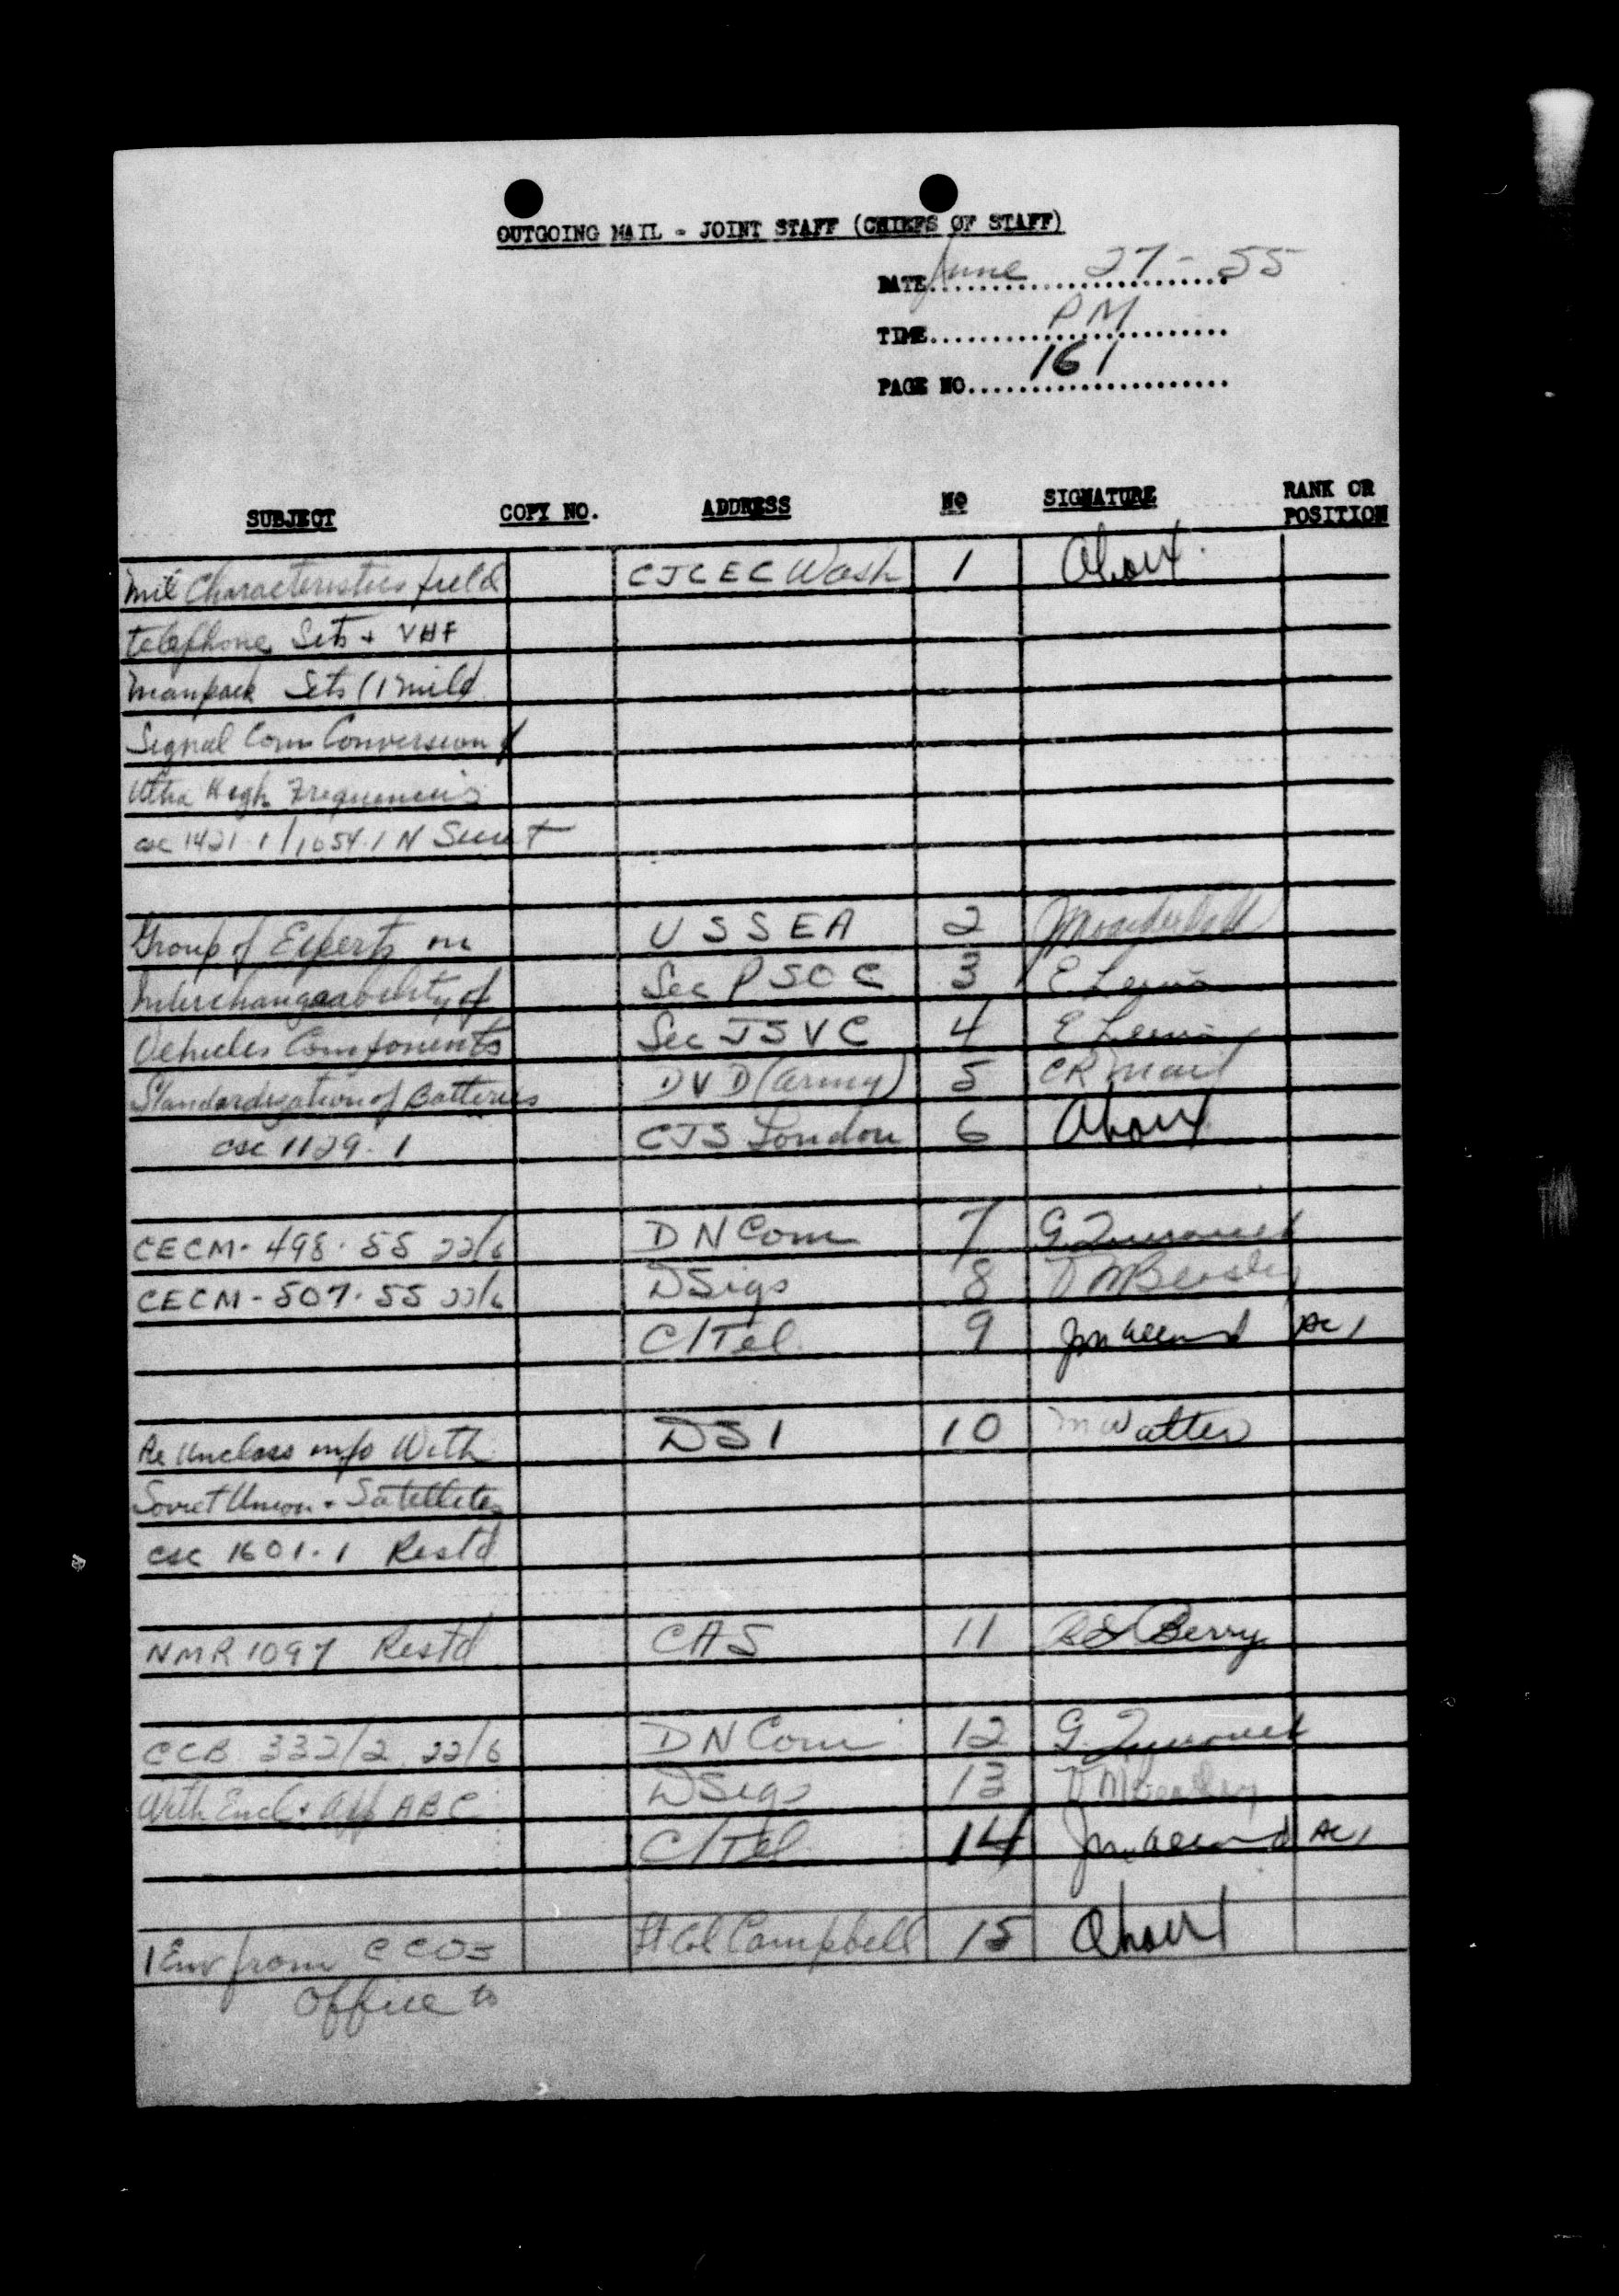 OUTGOING MAIL - JOINT STAFF (CHIEFS OF STAFF)
DATE June 27 - 55
TIME PM
PAGE NO. 161
SUBJECT COPY NO. ADDRESS NO SIGNATURE RANK OR POSITION
Mil Characteristics field CJCEC Wash 1
telephone Sets + VHF
manpack Sets (1 mile)
Signal Com Conversion of
Ultra High Frequencies
csc 1421.1/1654.1 N Secret
Group of Experts on USSEA 2
Interchangeability of Sec PSOC 3 E Lewis
Vehicles Components Sec JSVC 4 E Lewis
Standardization of Batteries DVD (Army) 5 CR Mail
csc 1129.1 CJS London 6
CECM-498-55 22/6 DNCom 7 G.
CECM-507-55 22/6 DSigs 8 Beasley
C/Tel 9 AC1
Re Unclass info With DSI 10 M Watters
Soviet Union + Satellites
csc 1601.1 Restd
NMR 1097 Restd CAS 11 Berry
CCB 332/2 22/6 DNCom 12 G.
With Encl + App ABC DSigs 13 Beasley
C/Tel 14 AC1
1 Env from CCOS Lt Col Campbell 15
Office to